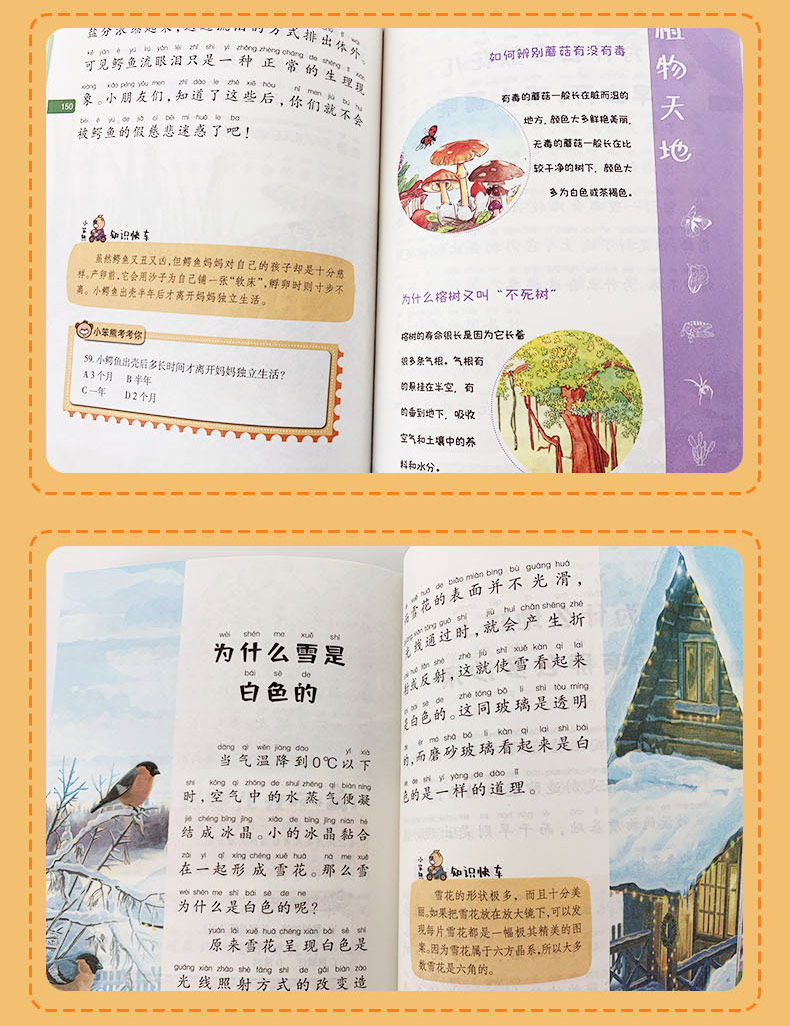 盐分浓缩起来，通过流泪的方式排出体外。
kě jiàn è yú liú yǎn lèi zhǐ shì yì zhǒng zhèng cháng de shēng lǐ xiàn
可见鳄鱼流眼泪只是一种正常的生理现
xiàng xiǎo péng yǒu men zhī dào le zhè xiē hòu nǐ men jiù bú huì
象。小朋友们，知道了这些后，你们就不会
150
bèi è yú de jiǎ cí bēi mí huò le ba
被鳄鱼的假慈悲迷惑了吧！
小笨熊
知识快车
虽然鳄鱼又丑又凶，但鳄鱼妈妈对自己的孩子却是十分慈
祥。产卵前，它会用沙子为自己铺一张“软床”，孵卵时则寸步不
离。小鳄鱼出壳半年后才离开妈妈独立生活。
小笨熊考考你
59. 小鳄鱼出壳后多长时间才离开妈妈独立生活？
A 3个月 B 半年
C 一年 D 2个月
如何辨别蘑菇有没有毒
有毒的蘑菇一般长在脏而湿的
地方，颜色大多鲜艳美丽，
无毒的蘑菇一般长在比
较干净的树下，颜色大
多为白色或茶褐色。
为什么榕树又叫“不死树”
榕树的寿命很长是因为它长着
很多条气根。气根有
的悬挂在半空，有
的垂到地下，吸收
空气和土壤中的养
料和水分。
植物天地
wèi shén me xuě shì
为什么雪是
bái sè de
白色的
dāng qì wēn jiàng dào yǐ xià
当气温降到0℃以下
shí kōng qì zhōng de shuǐ zhēng qì biàn níng
时，空气中的水蒸气便凝
jié chéng bīng jīng xiǎo de bīng jīng nián hé
结成冰晶。小的冰晶黏合
zài yì qǐ xíng chéng xuě huā nà me xuě
在一起形成雪花。那么雪
wèi shén me shì bái sè de ne
为什么是白色的呢？
yuán lái xuě huā chéng xiàn bái sè shì
原来雪花呈现白色是
guāng xiàn zhào shè fāng shì de gǎi biàn zào
光线照射方式的改变造
xuě huā de biǎo miàn bìng bù guāng huá
雪花的表面并不光滑，
guāng xiàn tōng guò shí jiù huì chǎn shēng zhé
光线通过时，就会产生折
shè huò fǎn shè zhè jiù shǐ xuě kàn qǐ lái
射或反射，这就使雪看起来
shì bái sè de zhè tóng bō li shì tòu míng
是白色的。这同玻璃是透明
de ér mó shā bō li kàn qǐ lái shì bái
的，而磨砂玻璃看起来是白
sè de shì yí yàng de dào lǐ
色的是一样的道理。
小笨熊
知识快车
雪花的形状极多，而且十分美
丽。如果把雪花放在放大镜下，可以发
现每片雪花都是一幅极其精美的图
案。因为雪花属于六方晶系，所以大多
数雪花是六角的。